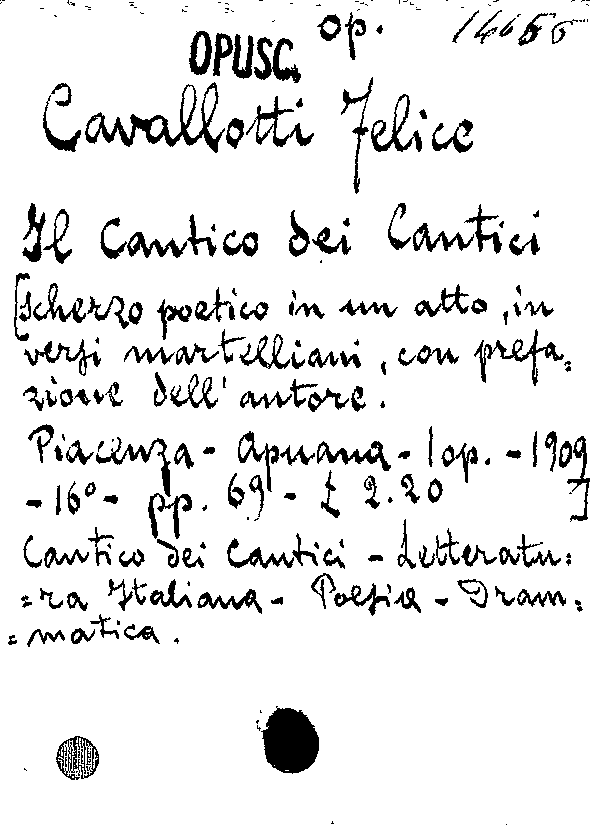 op. 14655
OPUSC.
Cavallotti Felice
Il Cantico dei Cantici
[Scherzo poetico in un atto, in
versi martelliani, con prefa=
zione dell'autore.
Piacenza - Apuana - lop. - 1909
- 16° - pp. 69 - £ 2.20 ]
Cantico dei Cantici - Letteratu=
=ra Italiana - Poesia - Dram=
=matica.